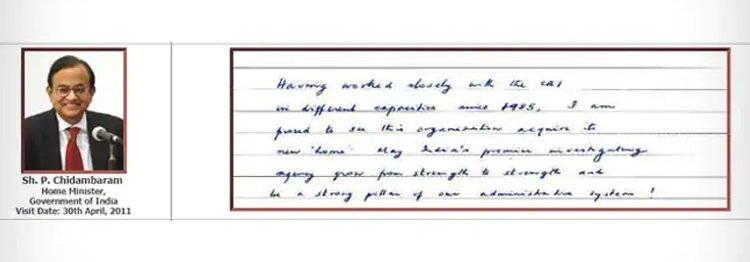 Sh. P. Chidambaram
Home Minister,
Government of India
Visit Date: 30th April, 2011
Having worked closely with the CBI
in different capacities since 1985, I am
proud to see this organisation acquire its
new 'home'. May India's premier investigating
agency grow from strength to strength and
be a strong pillar of our administrative system!